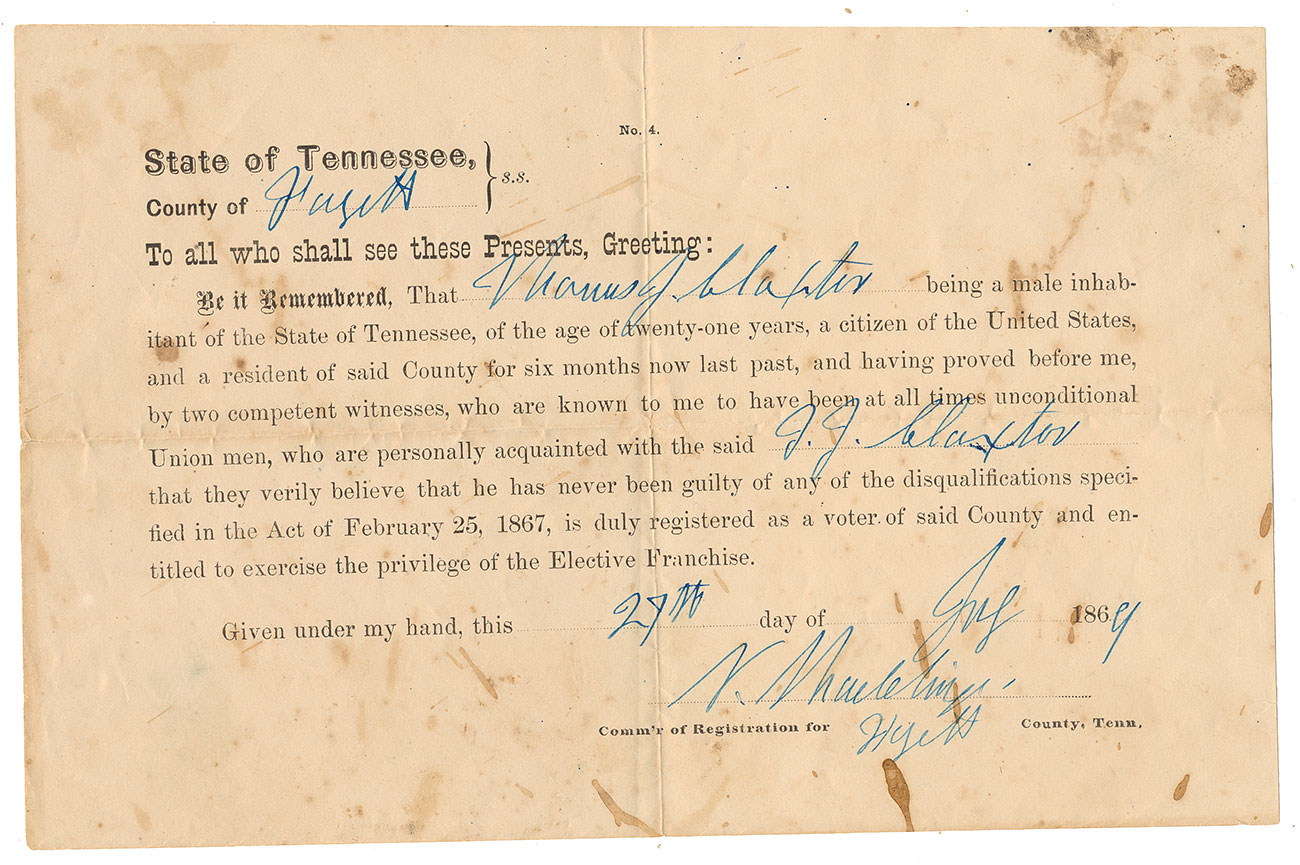 No. 4.
State of Tennessee,
County of Fayett } s.s.
To all who shall see these Presents, Greeting:
Be it Remembered, That Thomas J. Claxton being a male inhab-
itant of the State of Tennessee, of the age of twenty-one years, a citizen of the United States,
and a resident of said County for six months now last past, and having proved before me,
by two competent witnesses, who are known to me to have been at all times unconditional
Union men, who are personally acquainted with the said T. J. Claxton
that they verily believe that he has never been guilty of any of the disqualifications speci-
fied in the Act of February 25, 1867, is duly registered as a voter of said County and en-
titled to exercise the privilege of the Elective Franchise.
Given under my hand, this 27th day of July 1869
Comm'r of Registration for Fayett County, Tenn.